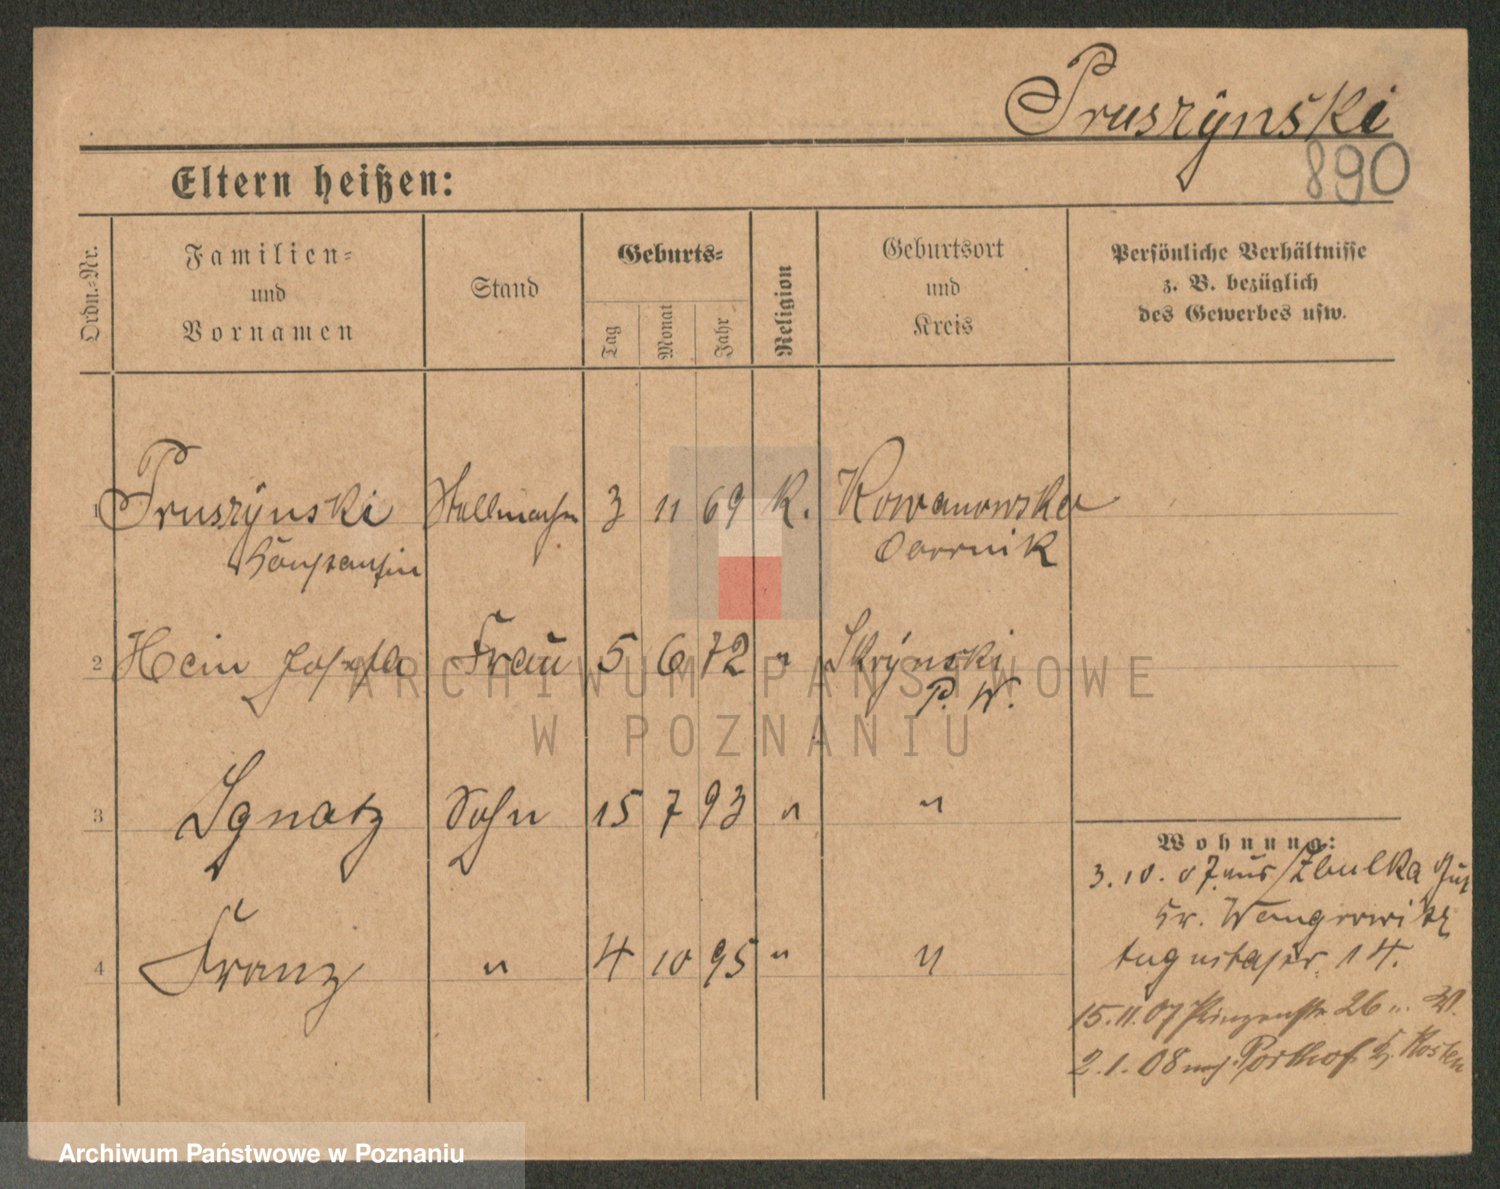 Pruszÿnski
890
Eltern heißen:
Ordn.-Nr.
Familien-
und
Vornamen
Stand
Geburts-
Tag
Monat
Jahr
Religion
Geburtsort
und
Kreis
Persönliche Verhältnisse
z. B. bezüglich
des Gewerbes usw.
1 Pruszÿnski Stellmacher 3 11 69 K. Kowanowska
Constantin
2 Hein Josefa Frau 5 6 72 " Skrÿnski
P. W.
3 Ignatz Sohn 15 7 93 " "
4 Franz " 4 10 95 " "
Wohnung:
3. 10. 07. aus
Kr. Wongrowitz
Augustastr. 14.
15. 11. 07 Prinzenstr. 26
2. 1. 08 Kosten
ARCHIWUM PAŃSTWOWE
W POZNANIU
Archiwum Państwowe w Poznaniu